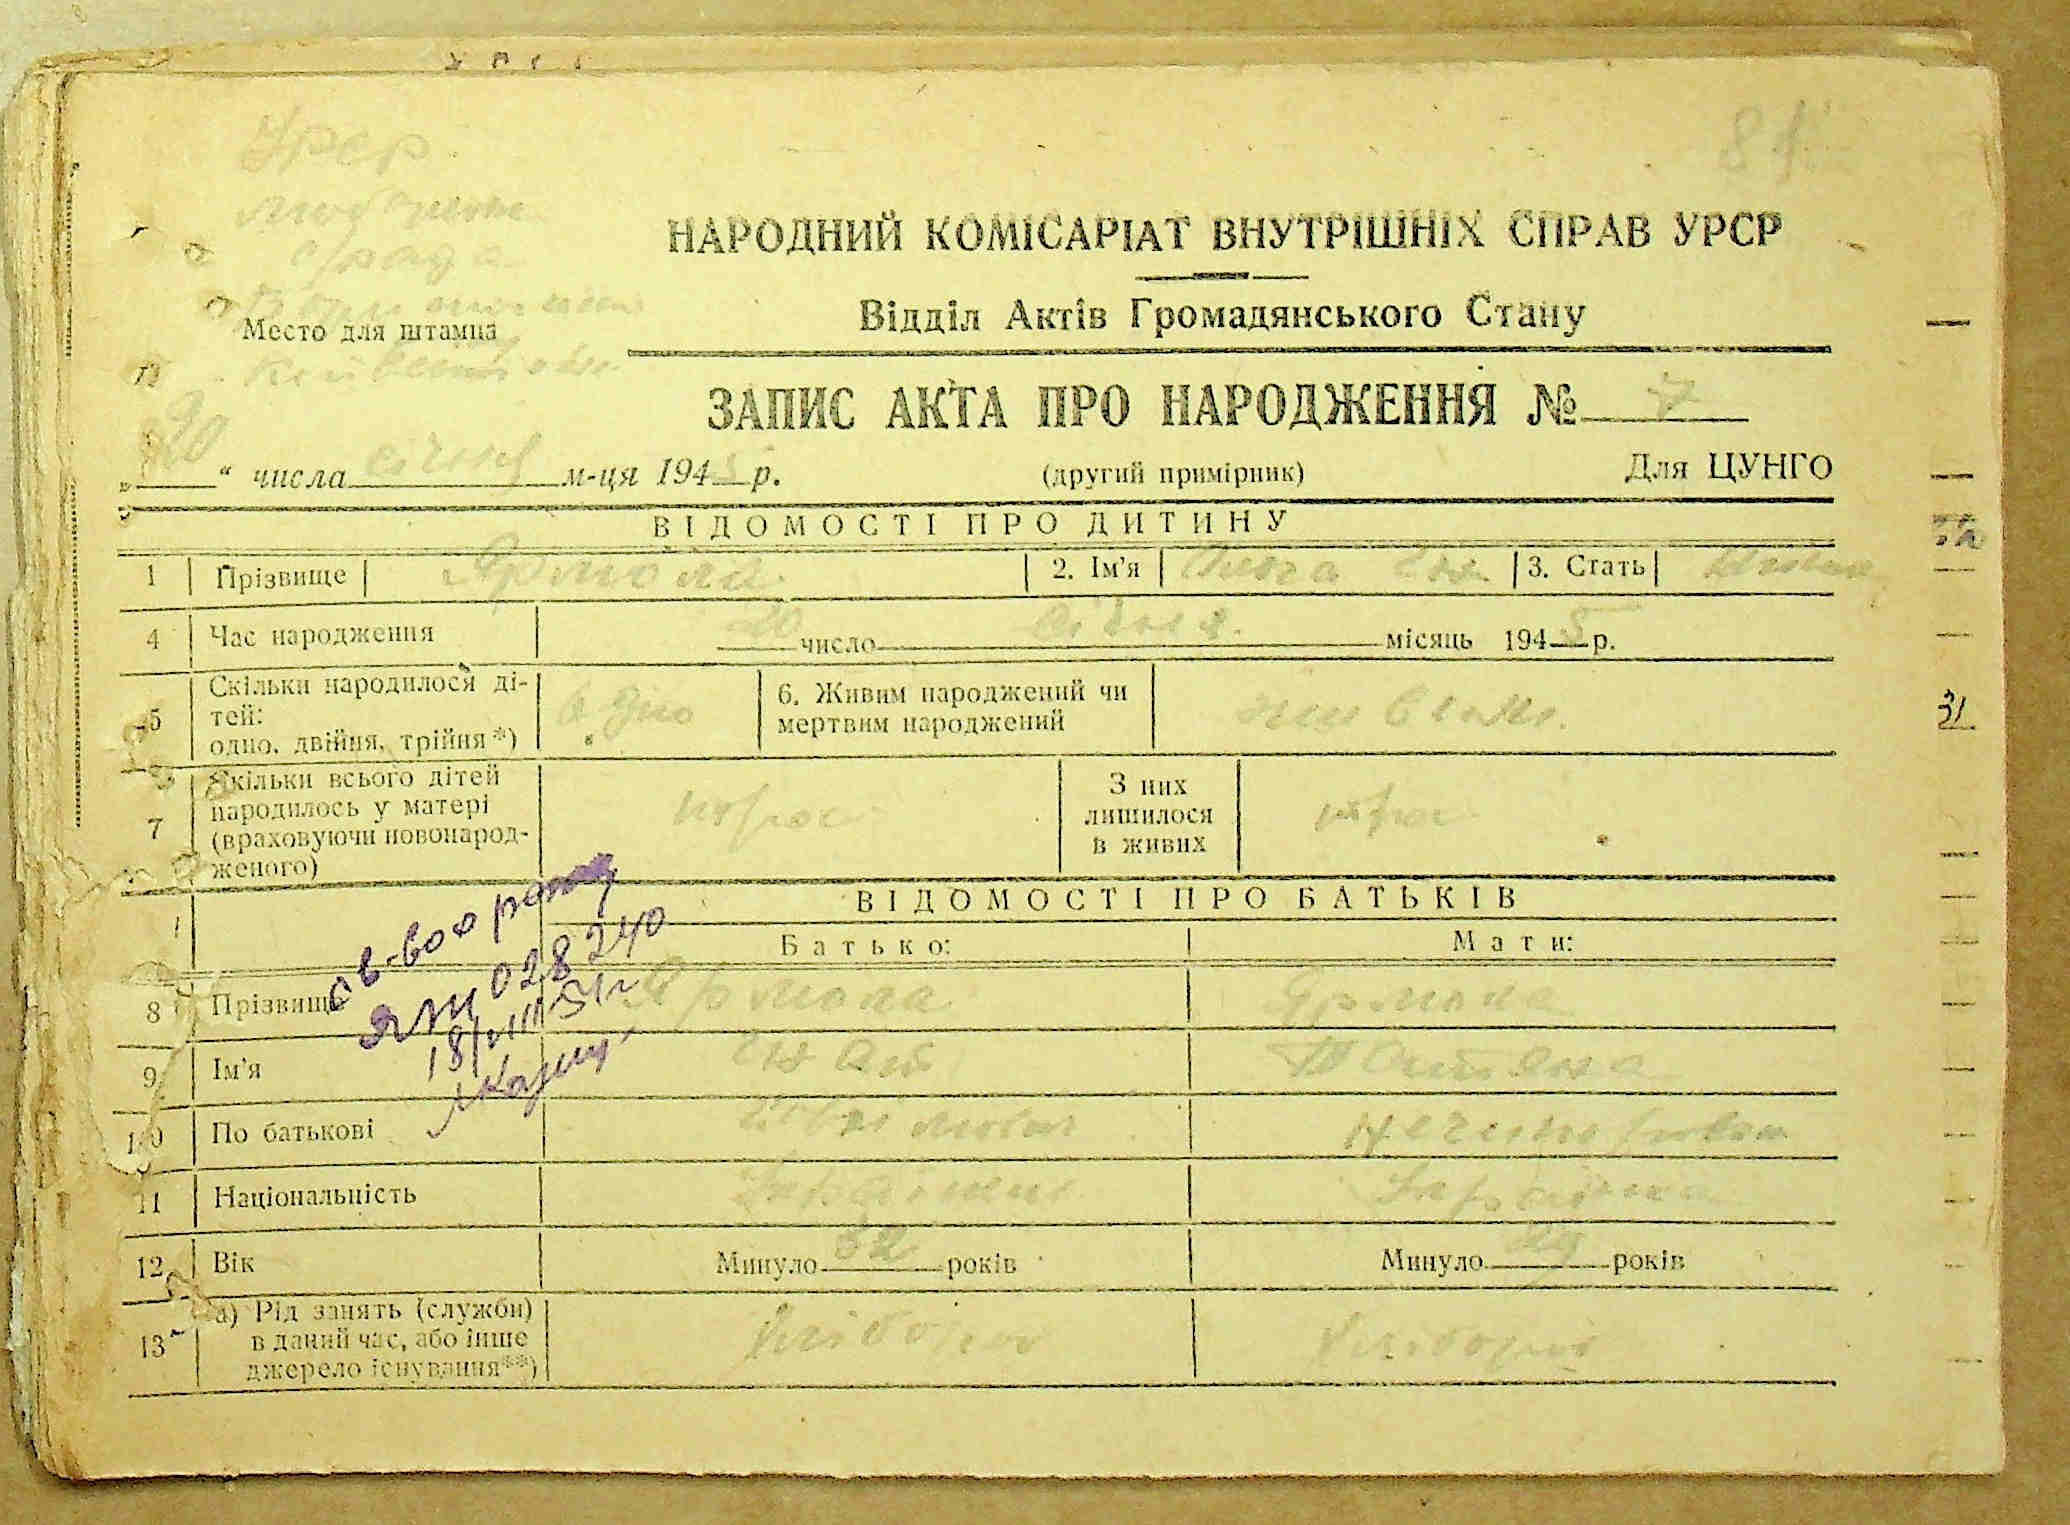 УРСР
81
НАРОДНИЙ КОМІСАРІАТ ВНУТРІШНІХ СПРАВ УРСР
Відділ Актів Громадянського Стану
Место для штампа
ЗАПИС АКТА ПРО НАРОДЖЕННЯ № 7
„20“ числа січня м-ця 1945 р. (другий примірник) Для ЦУНГО
ВІДОМОСТІ ПРО ДИТИНУ
1 Прізвище Ярмола 2. Ім'я Ольга 3. Стать
4 Час народження 20 число січня місяць 1945 р.
5 Скільки народилося ді-
тей:
одно, двійня, трійня*) одно 6. Живим народжений чи
мертвим народжений живим
7 Скільки всього дітей
народилось у матері
(враховуючи новонарод-
женого) З них
лишилося
в живих
ВІДОМОСТІ ПРО БАТЬКІВ
Батько: Мати:
8 Прізвище Ярмола Ярмола
9 Ім'я Іван Татяна
10 По батькові Нечипорівна
11 Національність Українець Українка
12 Вік Минуло 32 років Минуло 29 років
13 а) Рід занять (служби)
в даний час, або інше
джерело існування**) хлібороб хлібороб
св-во о рожд
ЯШ 028240
18/VIII 51 г